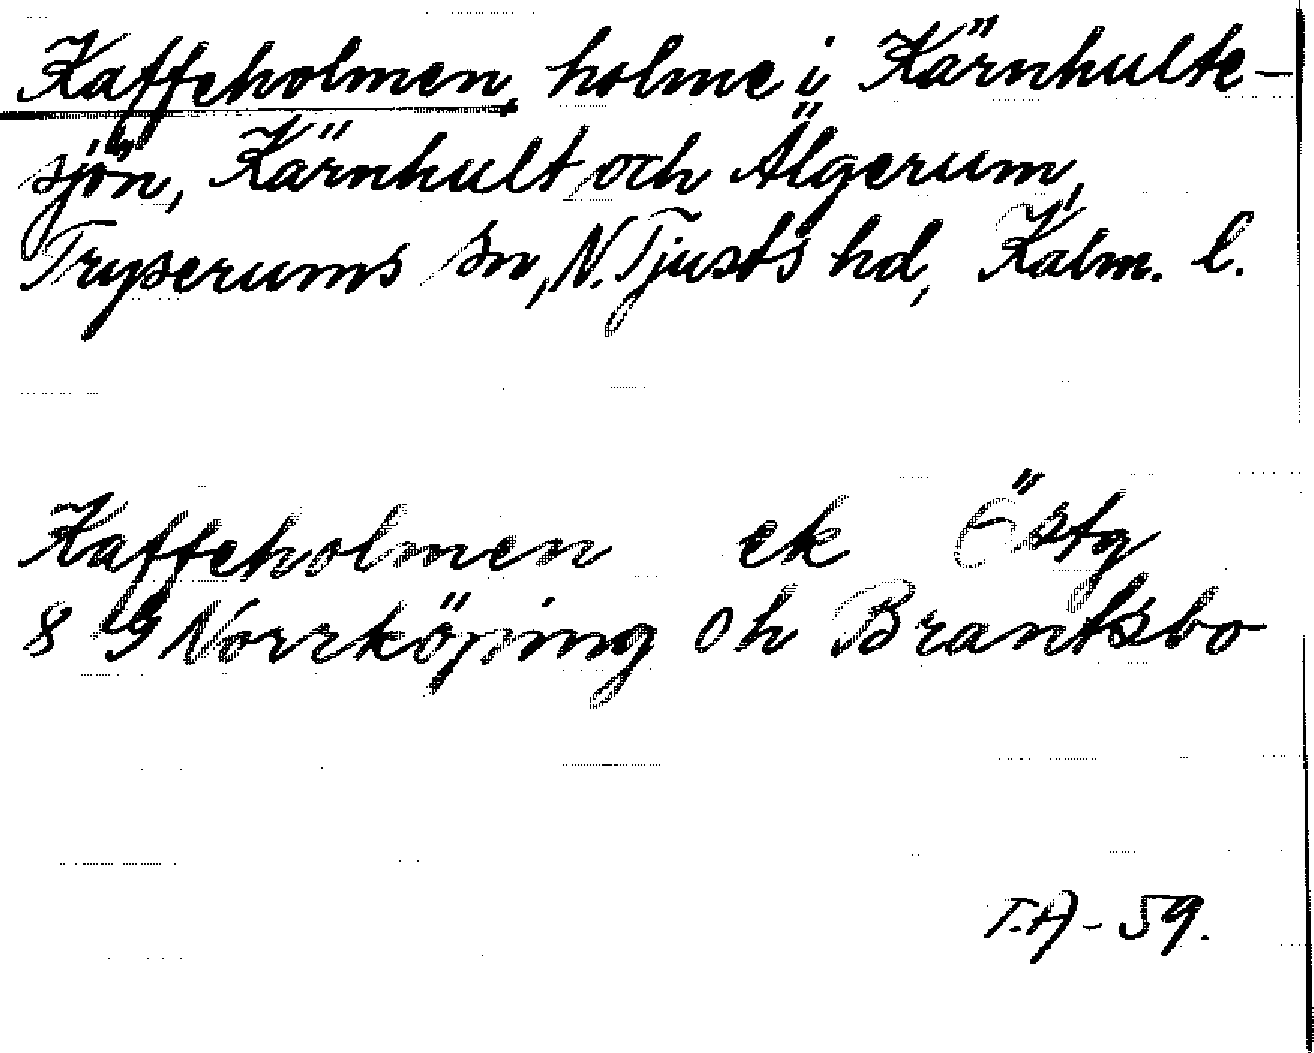 Kaffeholmen, holme i Kärnhulte-
sjön, Kärnhult och Älgerum,
Tryserums sn, N. Tjusts hd, Kalm. l.
Kaffeholmen ek Östg
8 G Norrköping Oh Brantsbo
T.A - 59.